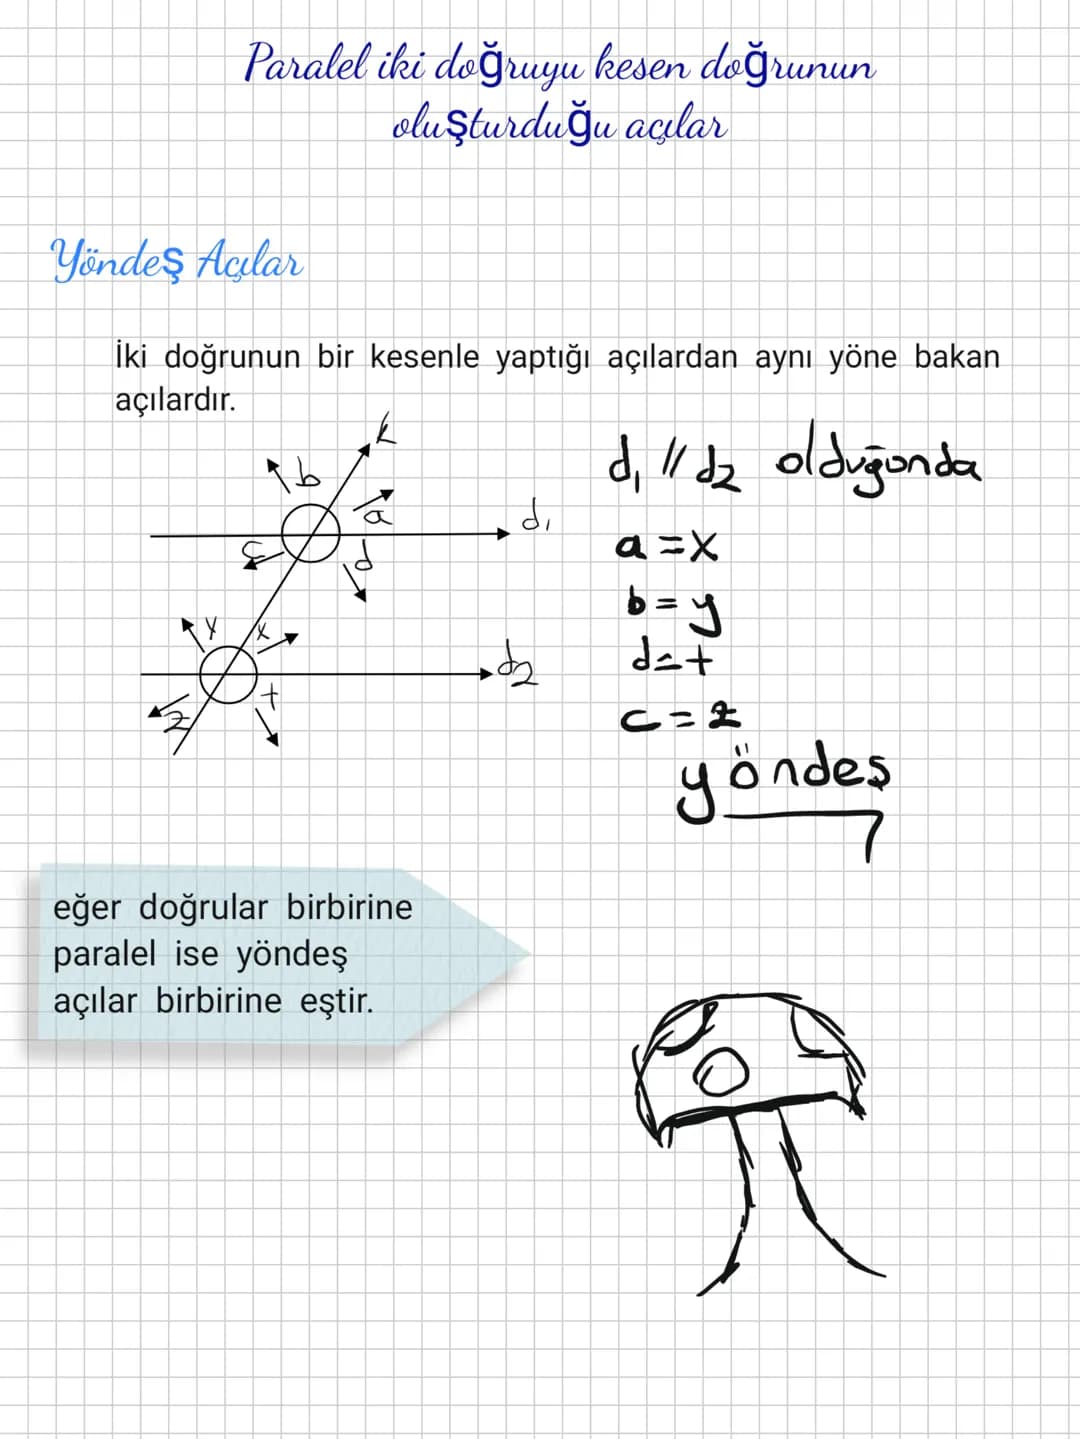 Paralel iki doğruyu kesen doğrunun
oluşturduğu açılar
Yöndeş Açılar
İki doğrunun bir kesenle yaptığı açılardan aynı yöne bakan
açılardır.
k
b
a
d₁
c
d
y
x
d2
z
t
d₁ // d2 olduğunda
a = x
b = y
d = t
c = z
yöndeş
eğer doğrular birbirine
paralel ise yöndeş
açılar birbirine eştir.